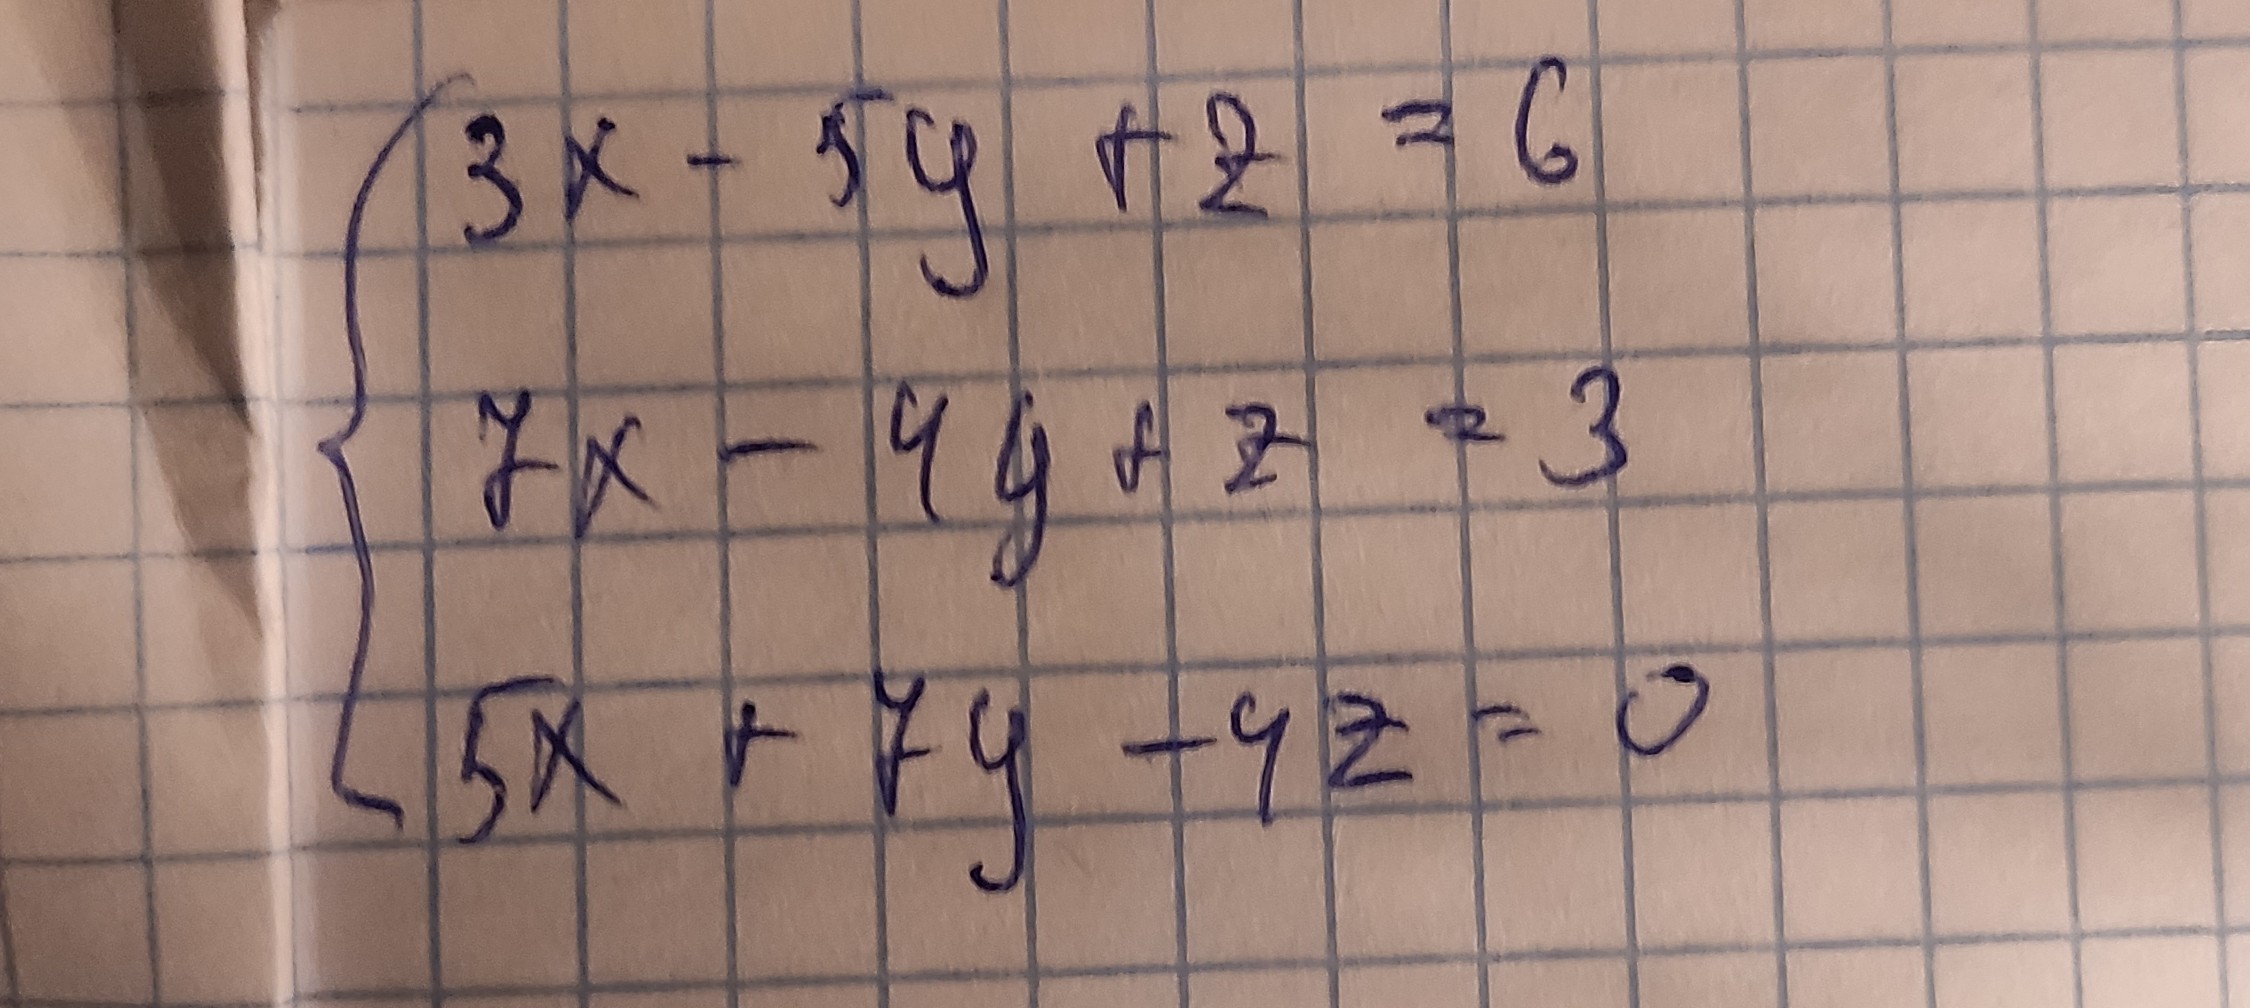 3x - 5y + z = 6
7x - 4y + z = 3
5x + 7y - 4z = 0